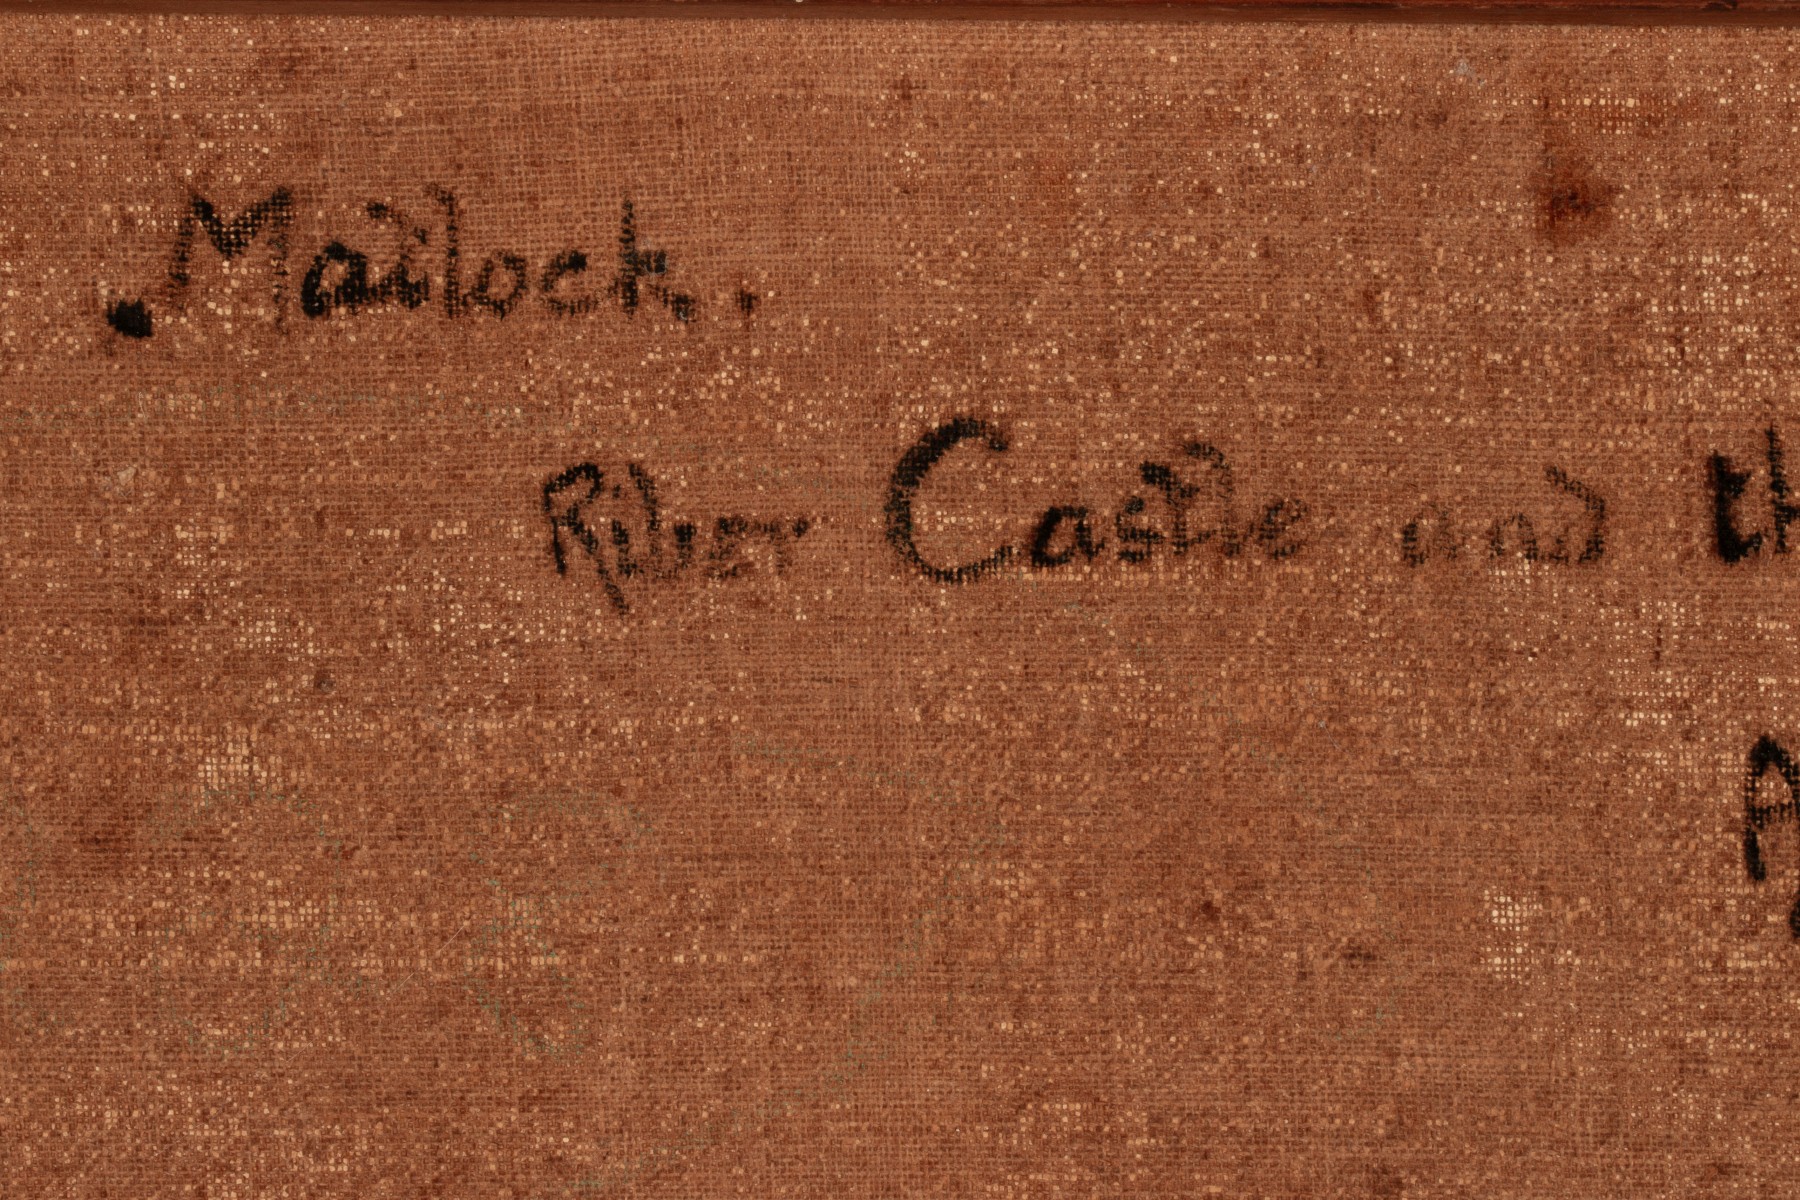 Matlock.
Riber Castle and th
A